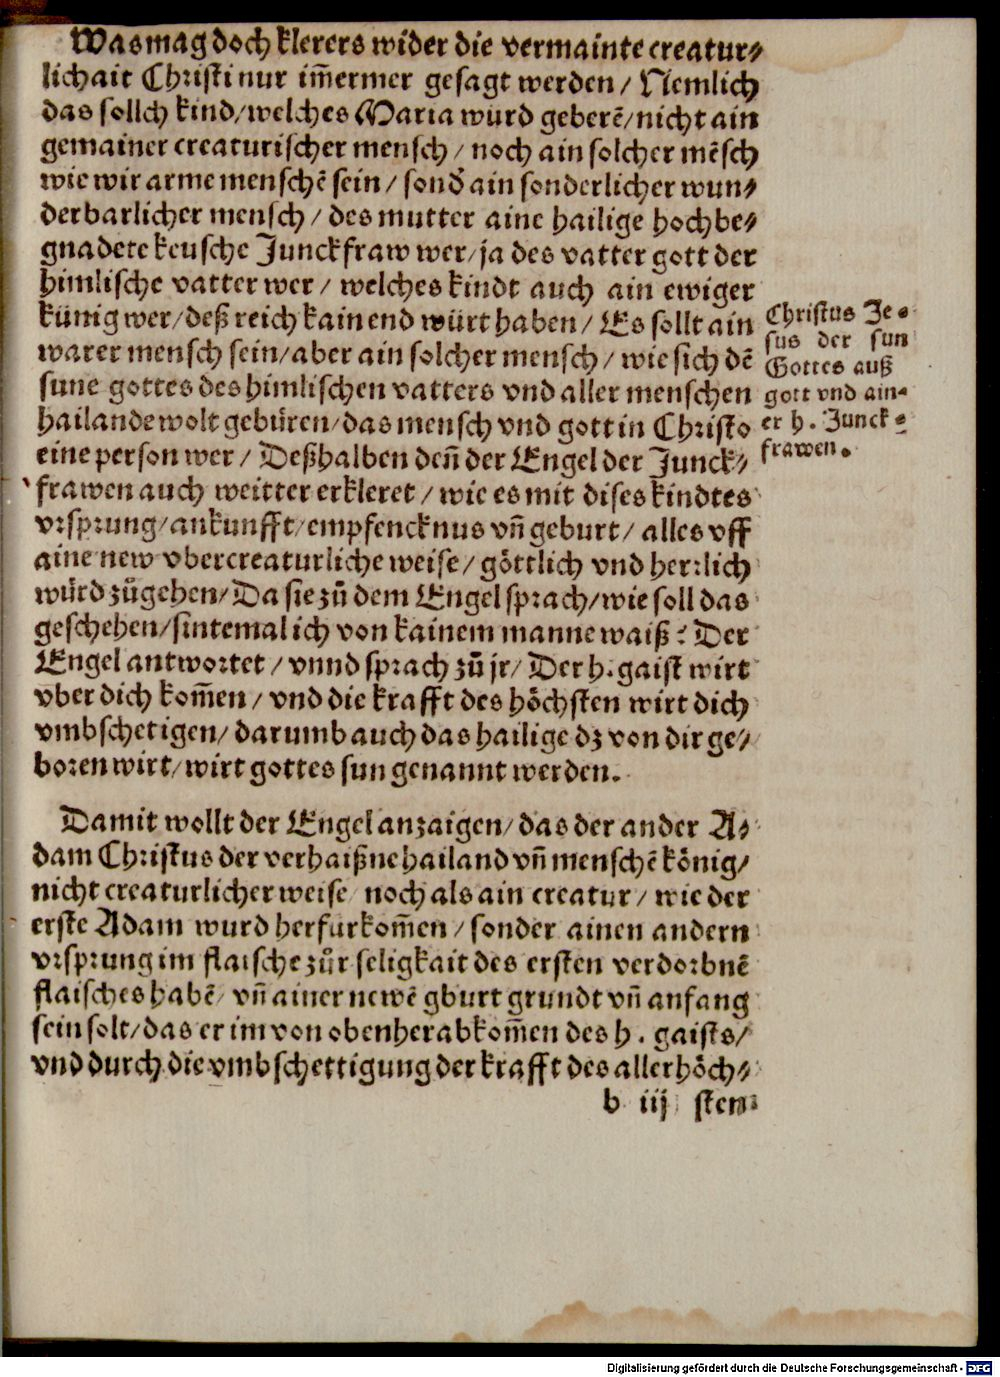 Was mag doch klerers wider die vermainte creatur⸗
lichait Christi nur im̄ermer gesagt werden / Nemlich
das sollch kind / welches Maria wurd geberē / nicht ain
gemainer creaturischer mensch / noch ain solcher mēsch
wie wir arme menschē sein / sond̓ ain sonderlicher wun⸗
derbarlicher mensch / des mutter aine hailige hochbe⸗
gnadete keusche Junckfraw wer / ja des vatter gott der
himlische vatter wer / welches kindt auch ain ewiger
künig wer / deß reich kain end würt haben / Es sollt ain
warer mensch sein / aber ain solcher mensch / wie sich dē
sune gottes des himlischen vatters vnd aller menschen
hailande wolt gebüren / das mensch vnd gott in Christo
eine person wer / Deßhalben den̄ der Engel der Junck⸗
frawen auch weitter erkleret / wie es mit dises kindtes
vrsprung / ankunfft / empfencknus vn̄ geburt / alles vff
aine new vbercreaturliche weise / göttlich vnd herrlich
würd zůgehen / Da sie zů dem Engel sprach / wie soll das
geschehen / sintemal ich von kainem manne waiß? Der
Engel antwortet / vnnd sprach zů jr / Der h. gaist wirt
vber dich kom̄en / vnd die krafft des höchsten wirt dich
vmbschetigen / darumb auch das hailige dz von dir ge⸗
boren wirt / wirt gottes sun genannt werden.
Christus Je⸗
sus der sun
Gottes auß
gott vnd ain⸗
er h. Junck⸗
frawen.
Damit wollt der Engel anzaigen / das der ander A⸗
dam Christus der verhaißne hailand vn̄ menschē könig /
nicht creaturlicher weise / noch als ain creatur / wie der
erste Adam wurd herfurkom̄en / sonder ainen andern
vrsprung im flaische zůr seligkait des ersten verdorbnē
flaisches habē / vn̄ ainer newē gburt grundt vn̄ anfang
sein solt / das er im von obenherabkom̄en des h. gaists /
vnd durch die vmbschettigung der krafft des allerhöch⸗
b iij sten
Digitalisierung gefördert durch die Deutsche Forschungsgemeinschaft - DFG